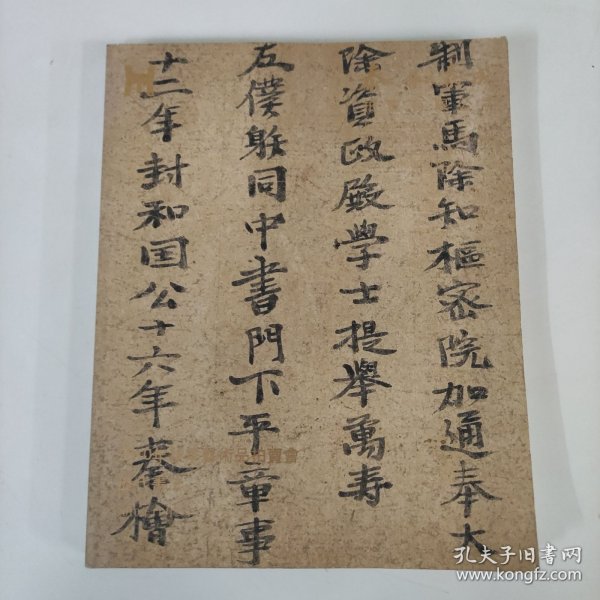 制軍馬除知樞密院加通奉大
除資政殿學士提舉萬寿
左僕躲同中書門下平章事
十二年封和国公十六年秦檜
孔夫子旧书网
www.kongfz.com